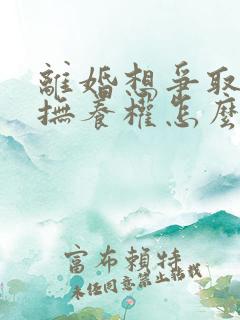 離婚想爭取
撫養權怎麼
富布賴特
未经同意禁止转载